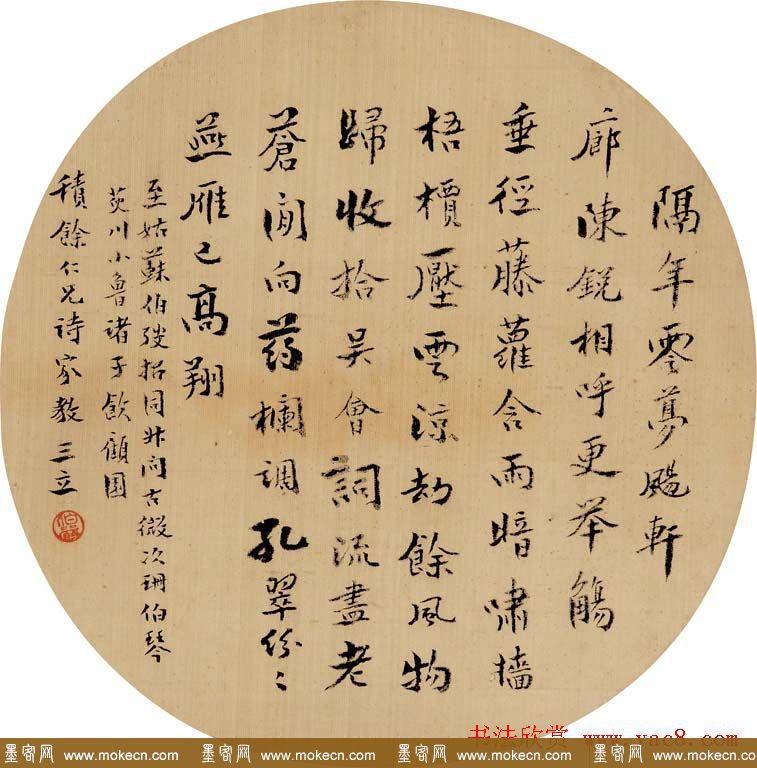 隔年零夢颺軒
廊陳銳相呼更举觴
垂徑藤蘿含雨暗啸墻
梧檟壓雲涼劫餘風物
歸收拾吴會詞流盡老
蒼閒向药欄調孔翠份〻
燕雁已高翔
至姑蘇伯弢招同叔问古微次珊伯琴
芰川小魯诸子飲顧園
積餘仁兄诗家教 三立
书法欣赏 www.yac8.com
墨客网 www.mokecn.com 墨客网 www.mokecn.com 墨客网 www.mokecn.com 墨客网 www.mokecn.com